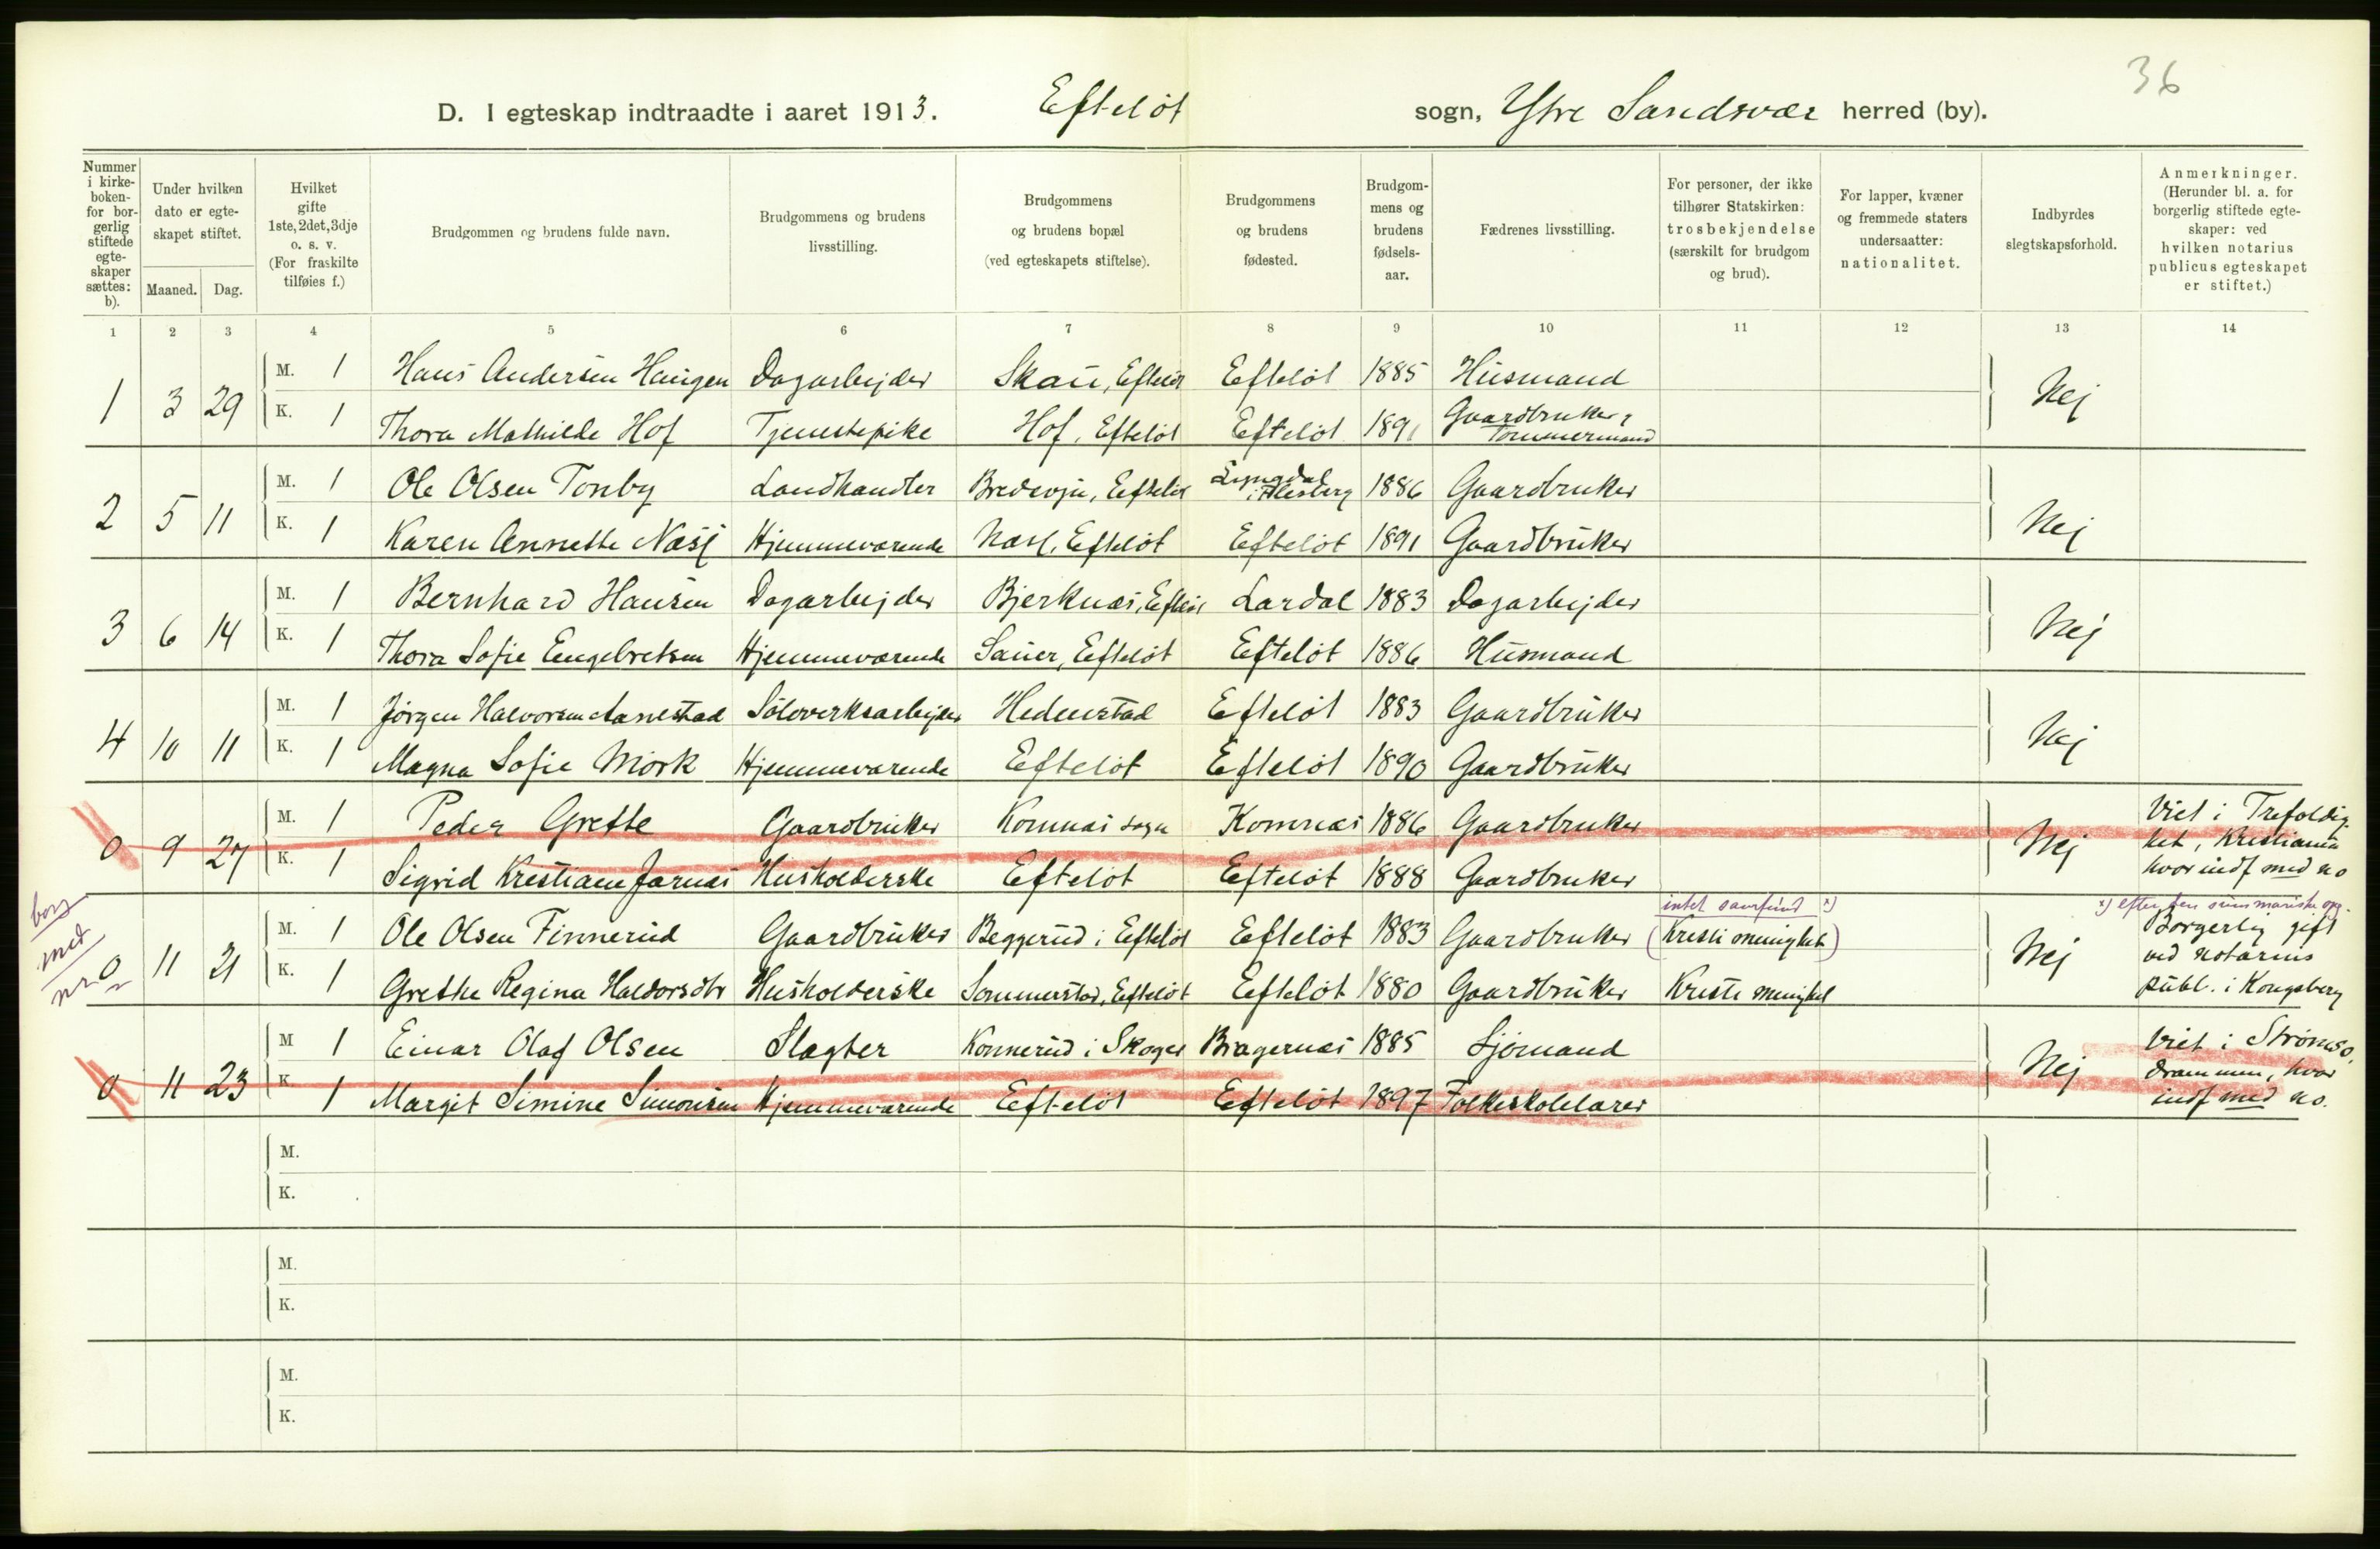 36
D. I egteskap indtraadte i aaret 1913. Efteløt sogn, Ytre Sandsvær herred (by).
Nummer i kirke-boken- for bor-gerlig stiftede egte-skaper sættes: b).
Under hvilken dato er egte-skapet stiftet.
Maaned. Dag.
Hvilket gifte 1ste, 2det, 3dje o. s. v. (For fraskilte tilføies f.)
Brudgommen og brudens fulde navn.
Brudgommens og brudens livsstilling.
Brudgommens og brudens bopæl (ved egteskapets stiftelse).
Brudgommens og brudens fødested.
Brudgom-mens og brudens fødsels-aar.
Fædrenes livsstilling.
For personer, der ikke tilhører Statskirken: trosbekjendelse (særskilt for brudgom og brud).
For lapper, kvæner og fremmede staters undersaatter: nationalitet.
Indbyrdes slegtskapsforhold.
Anmerkninger. (Herunder bl. a. for borgerlig stiftede egte-skaper: ved hvilken notarius publicus egteskapet er stiftet.)
1 2 3 4 5 6 7 8 9 10 11 12 13 14
1 3 29 M. 1 Hans Andersen Haugen Dagarbejder Skau, Efteløt Efteløt 1885 Husmand Nej
K. 1 Thora Mathilde Hof Tjenestepike Hof, Efteløt Efteløt 1891 Gaardbruker, Tømmermand
2 5 11 M. 1 Ole Olsen Tonby Landhandler Bredevju, Efteløt Lyngdal i Flesberg 1886 Gaardbruker Nej
K. 1 Karen Annette Næsj Hjemmeværende Næsj, Efteløt Efteløt 1891 Gaardbruker
3 6 14 M. 1 Bernhard Hansen Dagarbejder Bjerknæs, Efteløt Lardal 1883 Dagarbejder Nej
K. 1 Thora Sofie Engebretsen Hjemmeværende Sauer, Efteløt Efteløt 1886 Husmand
4 10 11 M. 1 Jørgen Halvorsen Aanestad Sølvverksarbejder Hedenstad Efteløt 1883 Gaardbruker Nej
K. 1 Magna Sofie Mørk Hjemmeværende Efteløt Efteløt 1890 Gaardbruker
0 9 27 M. 1 Peder Grette Gaardbruker Komnæs sogn Komnæs 1886 Gaardbruker Nej Viet i Trefoldig-
K. 1 Sigrid Kristiane Jarnæs Husholderske Efteløt Efteløt 1888 Gaardbruker
het, Kristiania
hvor indf med no
borg
med
nr.
intet samfund x)
x) efter den summariske opg.
0 11 21 M. 1 Ole Olsen Finnerud Gaardbruker Beggerud i Efteløt Efteløt 1883 Gaardbruker (Kristi menighet) Nej Borgerlig gift
K. 1 Grethe Regina Halvorsdtr Husholderske Sommerstad, Efteløt Efteløt 1880 Gaardbruker Kristi menighet
ved notarius
publ. i Kongsberg
0 11 23 M 1 Einar Olaf Olsen Slagter Konnerud i Skoger Bragernæs 1885 Sjømand Nej Viet i Strømsø,
K. 1 Margit Simine Simonsen Hjemmeværende Efteløt Efteløt 1897 Folkeskolelærer
Drammen, hvor
indf med no.
M.
K.
M.
K.
M.
K.